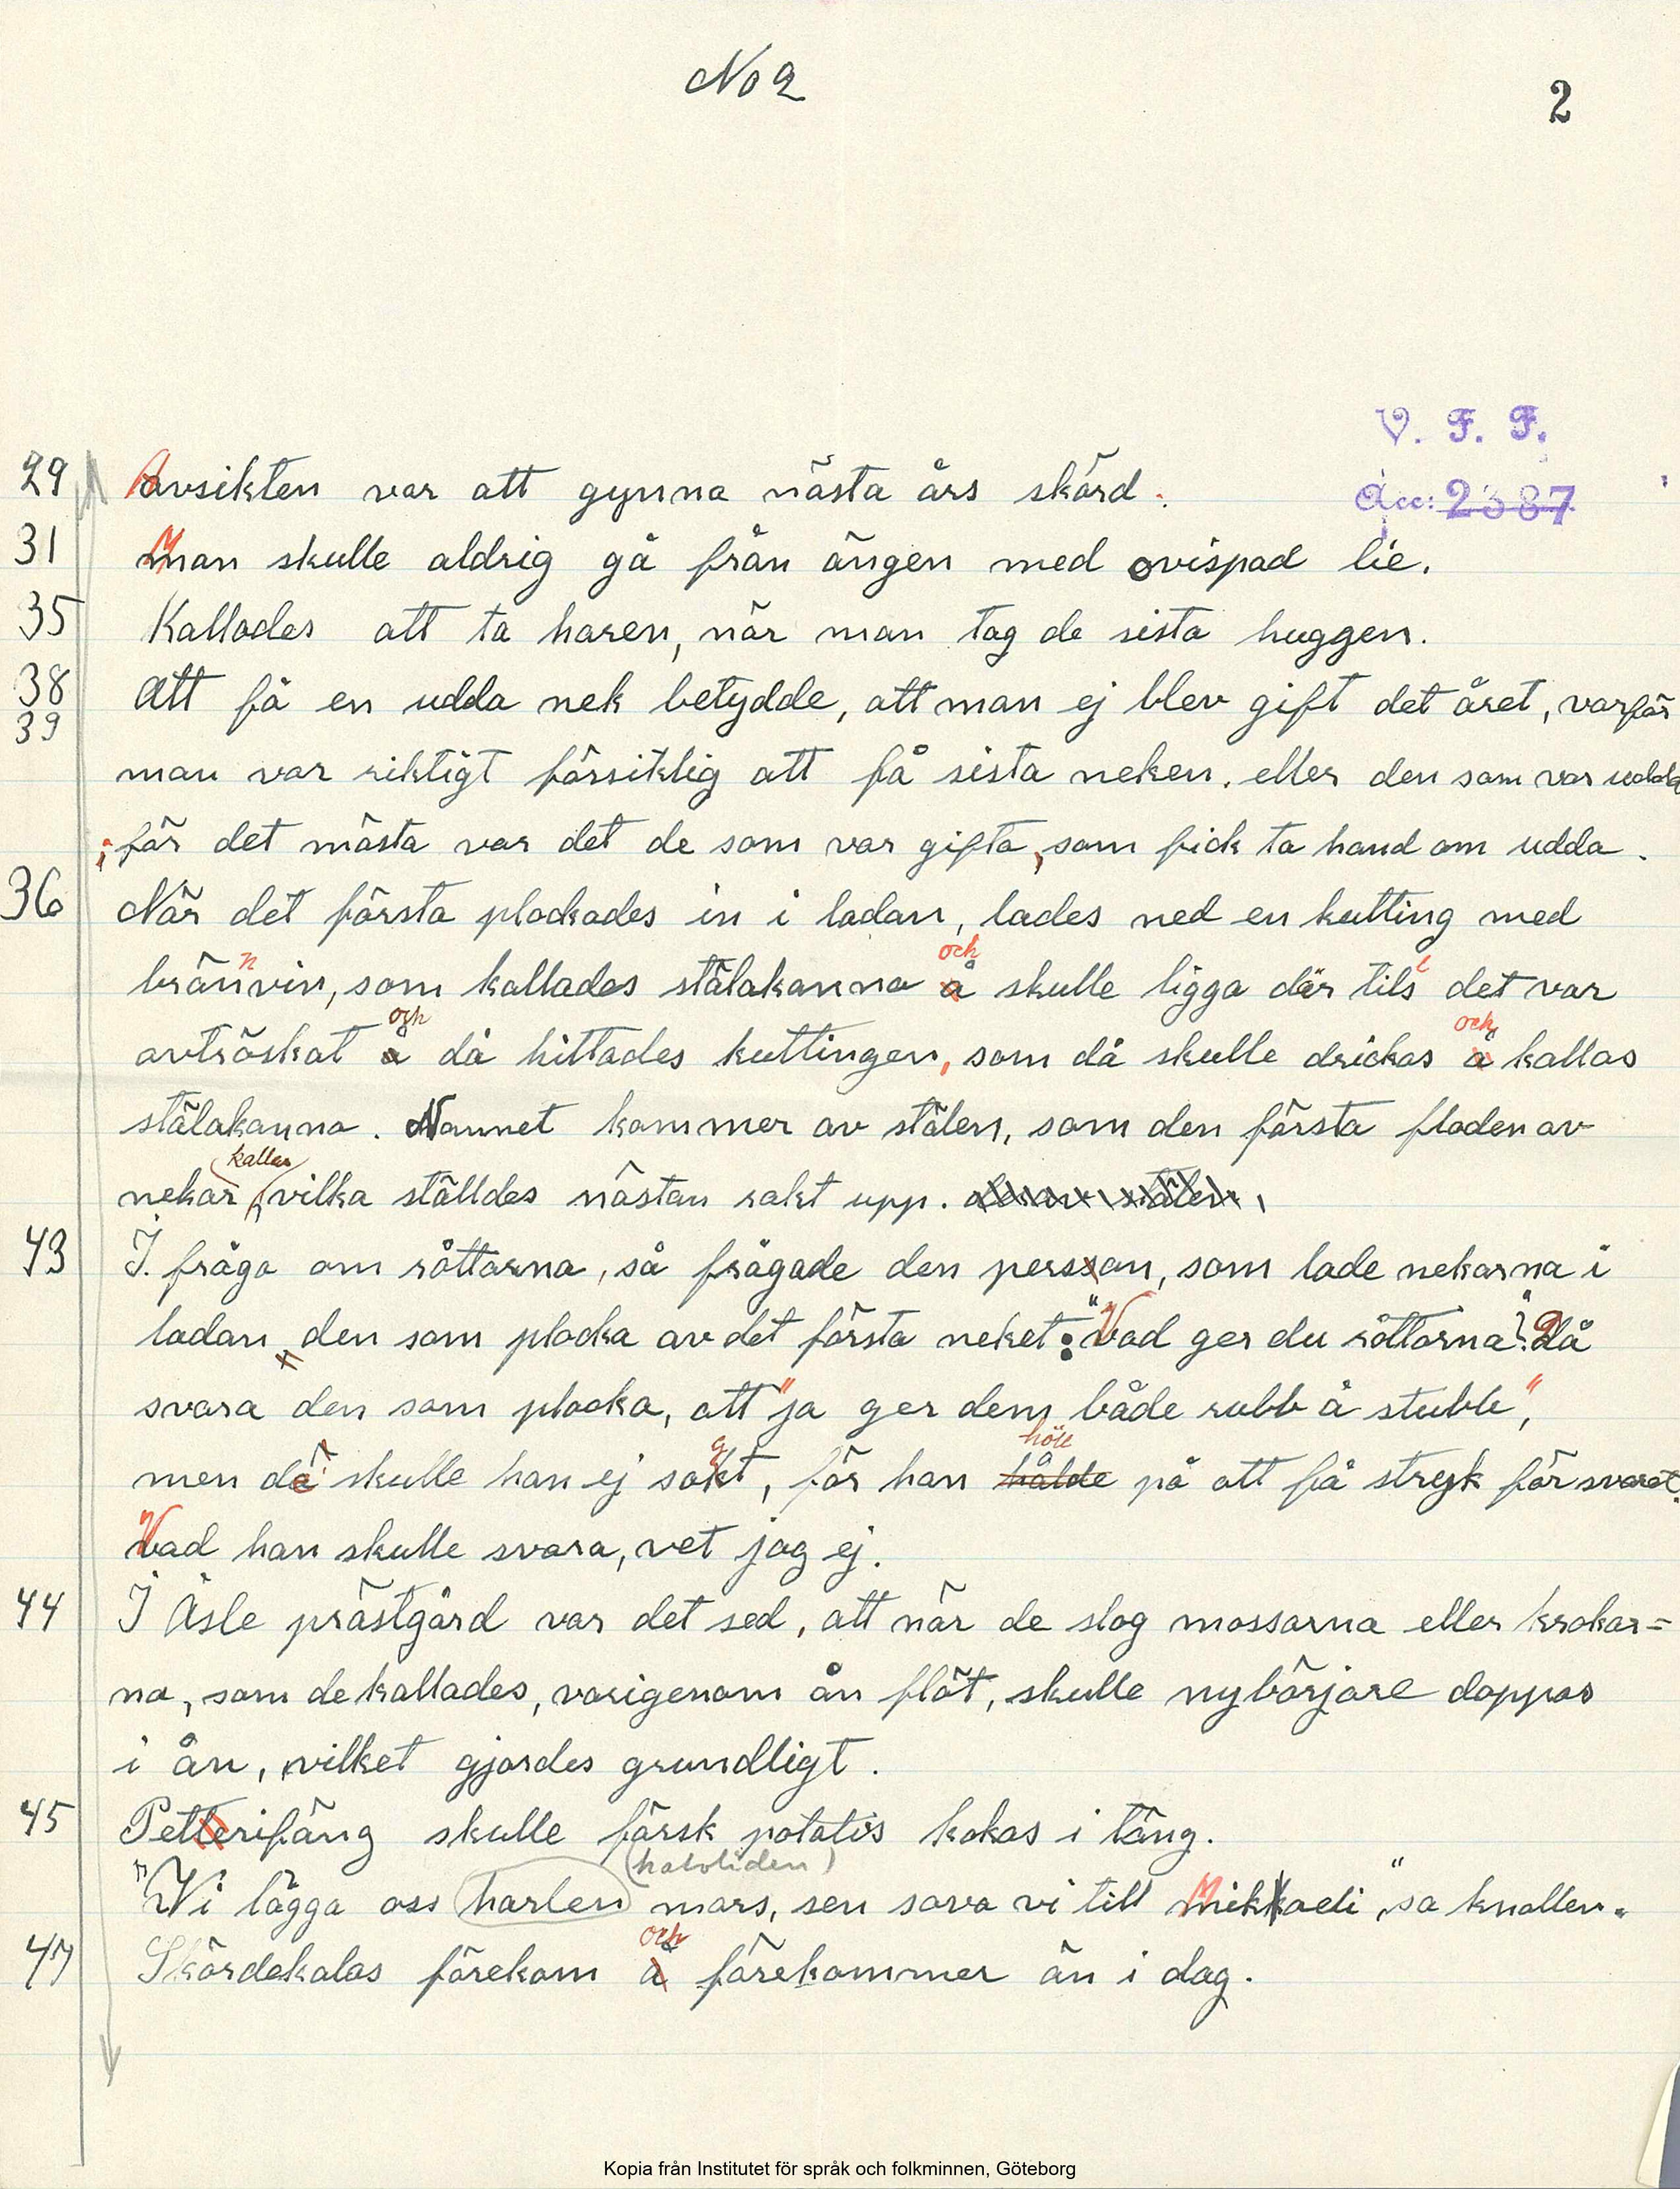 No 2
2
V. F. F.
Acc: 2387
29 Avsikten var att gynna nästa års skörd.
31 Man skulle aldrig gå från ängen med ovispad lie.
35 Kallades att ta haren, när man tog de sista huggen.
38 Att få en udda nek betydde, att man ej blev gift det året, varför
39
man var riktigt försiktig att få sista neken. eller den som var udda
för det mästa var det de som var gifta, som fick ta hand om udda.
36 När det första plockades in i ladan, lades ned en kutting med
brännvin, som kallades stålakanna och å skulle ligga där tills det var
avtröskat och å då hittades kuttingen, som då skulle drickas och å kallas
stålakanna. Namnet kommer av stålen, som den första floden av
nekar kallas, vilka ställdes nästan rakt upp.
43 I fråga om råttorna, så frågade den person, som lade nekarna i
ladan den som plocka av det första neket: "Vad ger du råttorna?" Då
svara den som plocka, att "ja ger dem både rubb å stubb",
men då skulle han ej sagt, för han höll hålde på att få stryk för svaret.
Vad han skulle svara, vet jag ej.
44 I Åsle prästgård var det sed, att när de slog mossarna eller krokar=
na, som de kallades, varigenom ån flöt, skulle nybörjare doppas
i ån, vilket gjordes grundligt.
45 Petterifång skulle färsk potatis kokas i tång.
(halvliden)
"Vi lägga oss harlen mars, sen sova vi till Mikkaeli", sa knallen.
47 Skördekalas förekom och å förekommer än i dag.
Kopia från Institutet för språk och folkminnen, Göteborg